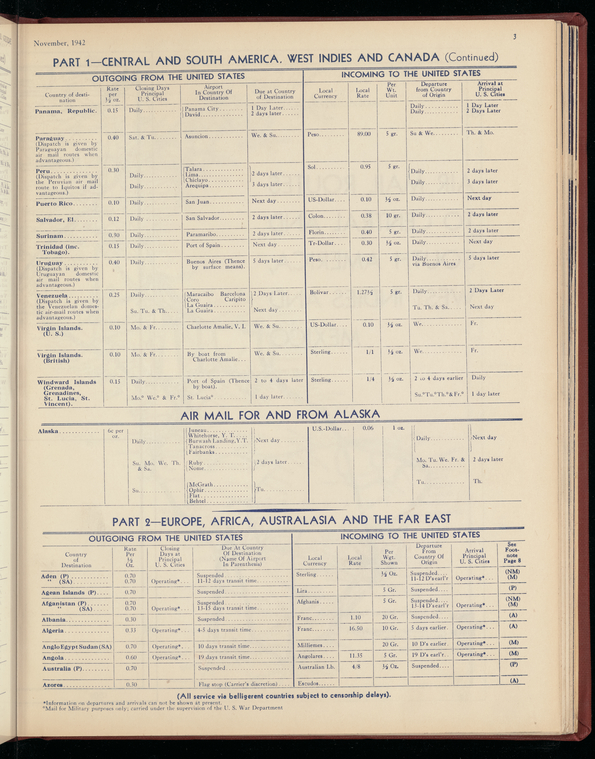 November, 1942
3
PART 1—CENTRAL AND SOUTH AMERICA. WEST INDIES AND CANADA (Continued)
OUTGOING FROM THE UNITED STATES
INCOMING TO THE UNITED STATES
Country of desti-nation Rate per ½ oz. Closing Days Principal U. S. Cities Airport In Country Of Destination Due at Country of Destination Local Currency Local Rate Per Wt. Unit Departure from Country of Origin Arrival at Principal U. S. Cities
Panama, Republic. 0.15 Daily Panama City Daily 1 Day Later
David 1 Day Later 2 days later Daily 2 Days Later
Paraguay 0.40 Sat. & Tu. Asuncion We. & Su. Peso 89.00 5 gr. Su & We. Th. & Mo.
(Dispatch is given by
Paraguayan domestic
air mail routes when
advantageous.)
Peru 0.30 Daily Talara Lima 2 days later Sol 0.95 5 gr. Daily 2 days later
(Dispatch is given by
the Peruvian air mail
route to Iquitos if ad-
vantageous.)
Daily Chiclayo Arequipa 3 days later Daily 3 days later
Puerto Rico 0.10 Daily San Juan Next day US-Dollar 0.10 ½ oz. Daily Next day
Salvador, El. 0.12 Daily San Salvador 2 days later Colon 0.38 10 gr. Daily 2 days later
Surinam 0.30 Daily Paramaribo 2 days later Florin 0.40 5 gr. Daily 2 days later
Trinidad (inc. Tobago). 0.15 Daily Port of Spain Next day Tr-Dollar 0.30 ½ oz. Daily Next day
Uruguay 0.40 Daily Buenos Aires (Thence by surface means). 5 days later Peso 0.42 5 gr. Daily via Buenos Aires 5 days later
(Dispatch is given by
Uruguayan domestic
air mail routes when
advantageous.)
Venezuela 0.25 Daily Maracaibo Barcelona Coro Caripito La Guaira 2 Days Later Bolivar 1.27½ 5 gr. Daily 2 Days Later
(Dispatch is given by
the Venezuelan domes-
tic air-mail routes when
advantageous.)
Su. Tu. & Th. La Guaira Next day Tu. Th. & Su. Next day
Virgin Islands. (U. S.) 0.10 Mo. & Fr. Charlotte Amalie, V. I. We. & Su. US-Dollar 0.10 ½ oz. We. Fr.
Virgin Islands. (British) 0.10 Mo. & Fr. By boat from Charlotte Amalie We. & Su. Sterling 1/1 ½ oz. We. Fr.
Windward Islands (Grenada, Grenadines, St. Lucia, St. Vincent). 0.15 Daily Port of Spain (Thence by boat). 2 to 4 days later Sterling 1/4 ½ oz. 2 to 4 days earlier Daily
St. Lucia 1 day later 1 day later
AIR MAIL FOR AND FROM ALASKA
Alaska 6c per oz. U.S.-Dollar 0.06 1 oz.
Daily Juneau Whitehorse, Y. T. Burwash Landing, Y.T. Tanacross Fairbanks Next day Daily Next day
Su. Mo. We. Th. & Sa. Ruby Nome 2 days later Mo. Tu. We. Fr. & Su. 2 days later
Su. McGrath Ophir Flat Bethel Tu. Tu. Th.
PART 2—EUROPE, AFRICA, AUSTRALASIA AND THE FAR EAST
OUTGOING FROM THE UNITED STATES
INCOMING TO THE UNITED STATES
Country of Destination Rate Per ½ Oz. Closing Days at Principal U. S. Cities Due At Country Of Destination (Name Of Airport In Parenthesis) Local Currency Local Rate Per Wgt. Shown Departure From Country Of Origin Arrival Principal U. S. Cities See Foot-note Page 8
Aden (P) 0.70 Suspended Sterling ½ Oz. Suspended (NM)
" (SA) 0.70 Operating*. 11-12 days transit time. 11-12 D'searl'r Operating* (M)
Agean Islands (P) 0.70 Suspended Lira 5 Gr. Suspended (P)
Afganistan (P) 0.70 Suspended Afghania 5 Gr. Suspended (NM)
" (SA) 0.70 Operating*. 13-15 days transit time. 13-14 D'searl'r Operating* (M)
Albania 0.30 Suspended Franc 1.10 20 Gr. Suspended (A)
Algeria Operating*. 4-5 days transit time. Franc 16.50 10 Gr. 5 days earlier Operating* (A)
Anglo Egypt Sudan (SA) 0.70 Operating*. 10 days transit time. Milliemes 20 Gr. 10 D's earlier Operating* (M)
Angola 0.60 Operating*. 19 days transit time. Angolares 11.35 5 Gr. 19 D's earl'r Operating* (M)
Australia (P) 0.70 Suspended Australian Lb. 4/8 ½ Oz. Suspended (P)
Azores 0.30 Flag stop (Carrier's discretion) Escudos (A)
(All service via belligerent countries subject to censorship delays).
*Information on departures and arrivals can not be shown at present.
Mail for Military purposes only; carried under the supervision of the U. S. War Department